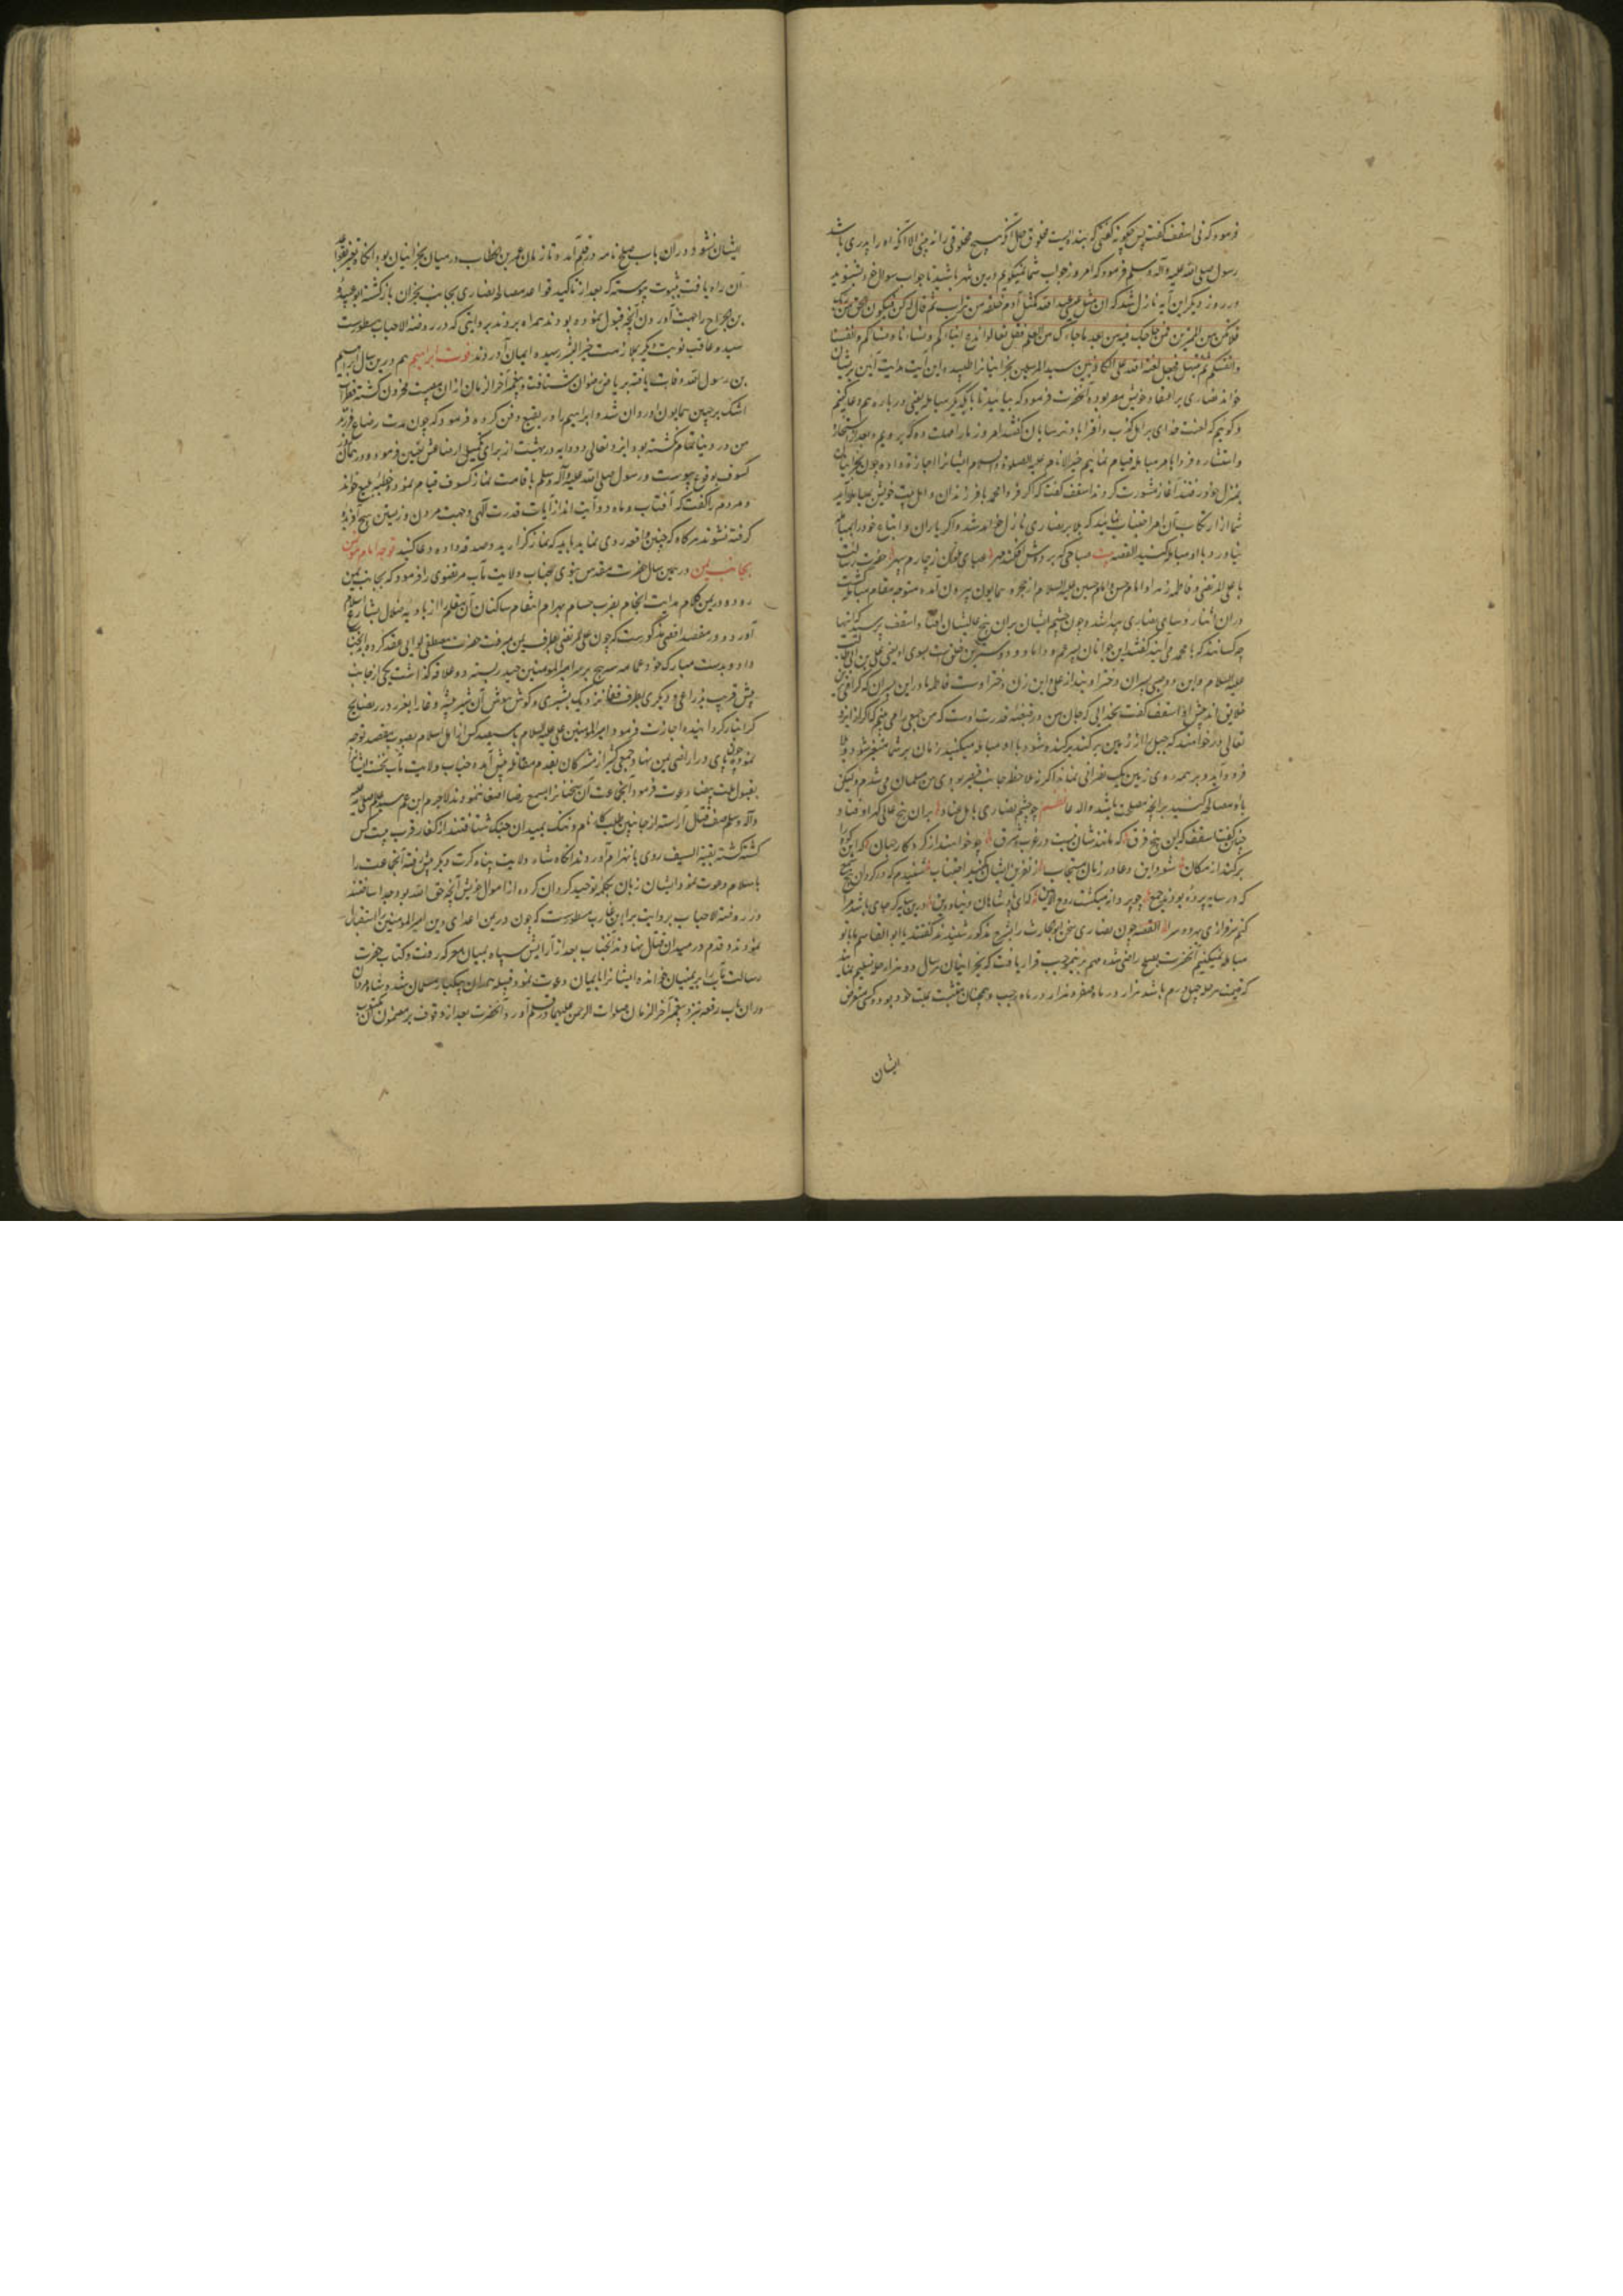 فرمود که نی اسقف گفت پس چگونه گفتی که بنده ایست مخلوق حال آنکه هیچ مخلوقی را نه بینی الا آنکه او را پدری باشد
رسول صلی الله علیه وآله وسلم فرمود که امروز جواب شما نمیگویم درین شهر باشید تا جواب سوال خود بشنوید
و روز دیگر این آیه نازل شد که ان مثل عیسی عند الله کمثل آدم خلقه من تراب ثم قال له کن فیکون الحق من ربک
فلا تکن من الممترین فمن حاجک فیه من بعد ما جاءک من العلم فقل تعالوا ندع ابناءنا و ابناءکم و نساءنا و نساءکم و انفسنا
و انفسکم ثم نبتهل فنجعل لعنة الله علی الکاذبین سید المرسلین نجرانیانرا طلبیده این آیت هدایت آیین بریشان
خواند نصاری بر اعتقاد خویش مصر بوده آنحضرت فرمود که بیایید تا با یکدیگر مباهله یعنی در باره هم دعا کنیم
و گوئیم که لعنت خدای بر اهل کذب و افترا باد ترسایان گفتند امروز ما را مهلت ده که برویم و بعد از استخاره
و استشاره فردا بامر مباهله قیام نمائیم خیر الانام علیه الصلوة والسلام ایشانرا اجازة داده چون نجرانیان
بمنزل خود رفتند آغاز مشورت کردند اسقف گفت که اگر فردا محمد با فرزندان و اهل بیت خویش بمباهله آید
شما از ارتکاب آن امر اجتناب نمایید که بلا بر نصاری نازل خواهد شد و اگر یاران و اتباع خود را بمباهله
بیاورد با او مباهله کنید القصه بیت صباحی که بر دوش افکند مهر عبای ملون ز چارم سپهر حضرت رسالت
با علی المرتضی و فاطمه زهرا و امام حسن و امام حسین علیه السلام از حجره همایون بیرون آمده متوجه مقام مباهله گشت
دران اثنا رؤسای نصاری پیدا شد و چون چشم ایشان بران پنج عالیشان افتاد اسقف پرسید که اینها
چه کسانند که با محمد می آیند گفتند این جوانان پسر عم و داماد و دوسترین خلق است بسوی او یعنی علی بن ابی طالب
علیه السلام و این دو صبی پسران دختر اویند از علی و این زن دختر اوست فاطمه مادر این پسران که گرامی ترین
خلایق اند پیش او اسقف گفت بخدایی که جان من در قبضه قدرت اوست که من جمعی را می بینم که اگر از ایزد
تعالی درخواهند که جبل را از زمین برکند برکنده شود با او مباهله میکنید
فرود آید و بر همه روی زمین یک نصرانی نماند اگر نه ملاحظه جانب قیصر بودی من مسلمان می شدم ولیکن
با او مصالحه کنید بر آنچه مصلحت باشد نظم چو چشم نصاری باهل عناد بران پنج عالی گهر اوفتاد
چنین گفت اسقف که این پنج فرق که مانندشان نیست در غرب و شرق چو خواهند از کردگار جهان که این کوه را
برکند از مکان شود این دعا در زمان مستجاب ز نفرین ایشان کنید اجتناب
القصه چون نصاری نجران شرح مذکور شنیدند گفتند یا ابو القاسم ما با تو
مباهله نمیکنیم آنحضرت بصلح راضی شده مهم برینموجب قرار یافت که نجرانیان هر سال دو هزار حله تسلیم نمایند
که قیمت هر حله چهل درم باشد هزار در ماه صفر و هزار در ماه رجب و همچنان متثبت بملت خود بوده کسی متعرض
ایشان
ایشان نشود و دران باب صلح نامه در قلم آمده تا زمان عمر بن الخطاب در میان نجرانیان بود
آن راه یافت بثبوت پیوسته که بعد از تاکید قواعد مصالحه نصاری بجانب نجران بازگشته ابو عبیده
بن جراح را جهت آوردن آنچه قبول نموده بودند همراه بردند بروایتی که در روضة الاحباب مسطورست
سید و عاقب نوبت دیگر بملازمت خیر البشر رسیده ایمان آوردند فوت ابراهیم هم درین سال ابراهیم
بن رسول الله وفات یافته بریاض رضوان شتافت و پیغمبر آخر الزمان ازان مصیبت محزون گشته قطرات
اشک بر جبین همایون او روان شد و ابراهیم را در بقیع دفن کرده فرمود که چون مدت رضاع فرزند
من در دنیا تمام نگشته بود ایزد تعالی دو دایه در بهشت از برای تکمیل ارضاعش تعیین فرمود و در همان روز
کسوف بوقوع پیوست و رسول صلی الله علیه وآله وسلم باقامت نماز کسوف قیام نمود و خطبه بلیغ خواند
و مردم را گفت که آفتاب و ماه دو آیت اند از آیات قدرت الهی و جهت مردن و زیستن هیچ آفریده
گرفته نشوند هرگاه که چنین واقعه روی نماید باید که نماز گزارید و صدقه داده دعا کنید توجه امام مؤمنین
بجانب یمن در همین سال حضرت مقدس نبوی بجناب ولایت مآب مرتضوی را فرمود که بجانب یمن
رود و در یمن کلام هدایت انجام بضرب حسام بهرام انتقام ساکنان آن مملکت را از بادیه ضلال بشارع اسلام
آورد و در مقصد اقصی مذکورست که چون علی المرتضی بطرف یمن میرفت حضرت مصطفی لوائی عقد کرده بآنجناب
داد و بدست مبارک خود عمامه سه پیچ بر سر امیر المومنین حیدر بسته دو علاقه گذاشت یکی از جانب
پیش قریب بذراعی و دیگری بطرف قفا نزدیک بشبری و
امیر المؤمنین علی علیه السلام با سیصد کس از اهل اسلام بصوب مقصد توجه
نموده چون پای در اراضی یمن نهاد جمعی کثیر از مشرکان بقدم مقابله پیش آمده جناب ولایت مآب نخست ایشانرا
بقبول ملت بیضا دعوت فرمود و آنجماعت آن سخنانرا بسمع رضا اصغا ننمودند لاجرم ابن عم سید عالم صلی الله علیه
وآله وسلم صف قتال آراسته از جانبین طلبکار نام و ننگ بمیدان جنگ شتافتند از کفار قرب بیست کس
کشته گشته بقیة السیف روی بانهزام آوردند آنگاه شاه ولایت پناه کرت دیگر پیش رفته آنجماعت را
باسلام دعوت نمود و ایشان زبان بکلمه توحید گردان کرده از اموال خویش آنچه حق الله بود جدا ساختند
و در روضة الاحباب بروایت براء بن عازب مسطورست که چون در یمن اعدای دین امیر المومنین را استقبال
نمودند و قدم در میدان قتال نهادند آنجناب بعد از آرایش سپاه بمیان معرکه رفت و کتاب حضرت
رسالت مآب را بر یمنیان خوانده ایشانرا بایمان دعوت نمود و قبیله همدان بیکبار مسلمان شد و شاه مردان
دران باب رقعه نزد پیغمبر آخر الزمان صلوات الرحمن علیهما در قلم آورد و آنحضرت بعد از وقوف بر مضمون آن مکتوب